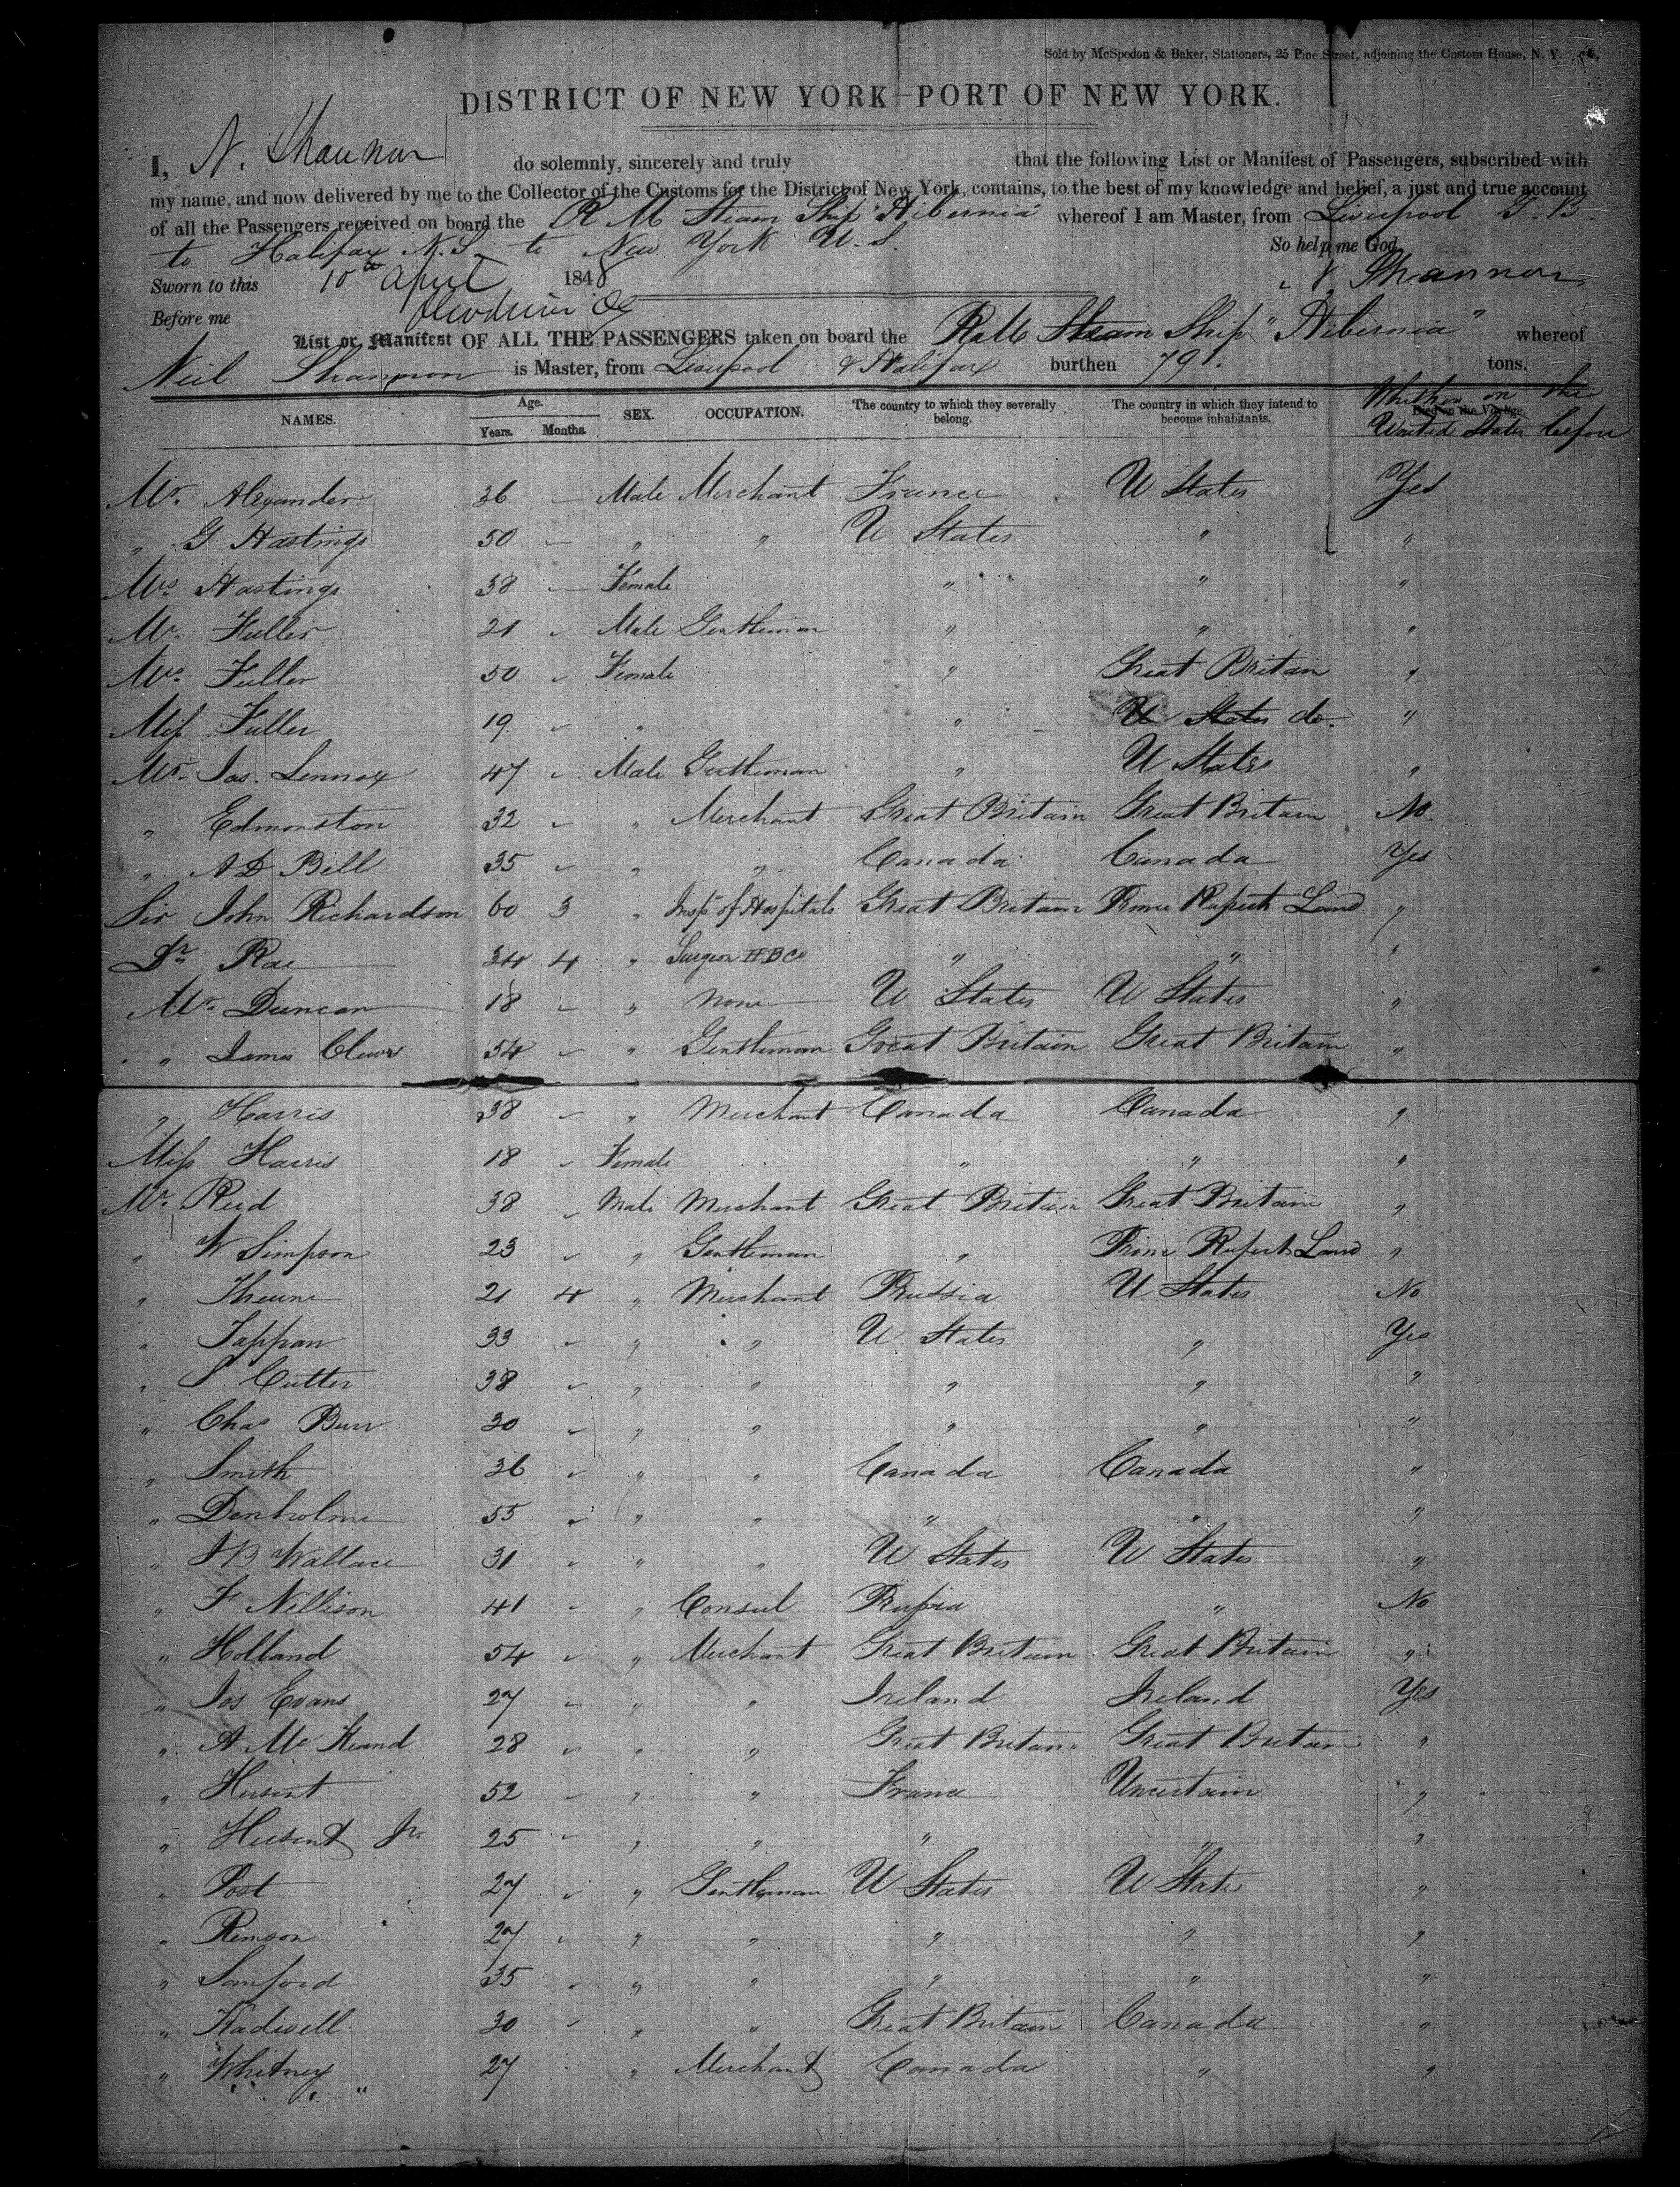 Sold by McSpedon & Baker, Stationers, 25 Pine Street, adjoining the Custom House, N. Y.
DISTRICT OF NEW YORK—PORT OF NEW YORK.
I, N. Shannon do solemnly, sincerely and truly that the following List or Manifest of Passengers, subscribed with
my name, and now delivered by me to the Collector of the Customs for the District of New York, contains, to the best of my knowledge and belief, a just and true account
of all the Passengers received on board the R M Steam Ship "Hibernia" whereof I am Master, from Liverpool G. B.
to Halifax N. S. to New York U. S. So help me God
Sworn to this 10th April 1848 N. Shannon
Before me
List or Manifest OF ALL THE PASSENGERS taken on board the Steam Ship "Hibernia" whereof
Neil Shannon is Master, from Liverpool & Halifax burthen 791. tons.
NAMES. Age. Years. Months. SEX. OCCUPATION. The country to which they severally belong. The country in which they intend to become inhabitants. Died on the Voyage. Whither in the United States before
Mr. Alexander 36 — Male Merchant France U States Yes
„ G Hastings 50 — „ „ U States „ „
Mrs Hastings 38 — Female „ „ „
Mr. Fuller 21 - Male Gentleman „ „ „
Mrs Fuller 50 - Female „ Great Britain „
Miss Fuller 19 - „ „ U States do. „
Mr. Jas. Lennox 47 - Male Gentleman „ U States „
„ Edmonston 32 - „ Merchant Great Britain Great Britain No.
„ A D Bell 35 - „ „ Canada Canada Yes
Sir John Richardson 60 5 „ Insp of Hospitals Great Britain Prince Ruperts Land „
Dr. Rae 34 4 „ Surgeon HBCo „ „ „
Mr. Duncan 18 - „ none U States U States „
„ James Clews 54 - „ Gentleman Great Britain Great Britain „
„ Harris 38 - „ Merchant Canada Canada „
Miss Harris 18 - Female „ „ „
Mr. Reid 38 - Male Merchant Great Britain Great Britain „
„ W Simpson 23 - „ Gentleman „ Prince Ruperts Land „
„ 21 4 „ Merchant U States No
„ Tappan 33 - „ „ U States „ Yes
„ S Cutter 38 - „ „ „ „ „
„ Chas Burr 30 - „ „ „ „ „
„ Smith 36 - „ „ Canada Canada „
„ Denholme 55 - „ „ „ „ „
„ J B Wallace 31 - „ „ U States U States „
„ F Nellison 41 - „ Consul Russia „ No
„ Holland 54 - „ Merchant Great Britain Great Britain „
„ Jos Evans 27 - „ „ Ireland Ireland Yes
„ A Mc Keand 28 - „ „ Great Britain Great Britain „
„ 52 - „ „ France Uncertain „
„ Jr. 25 - „ „ „ „ „
„ Post 27 - „ Gentleman U States U State „
„ Remson 27 - „ „ „ „ „
„ Sanford 35 - „ „ „ „ „
„ Kadwell 30 - „ „ Great Britain Canada „
„ Whitney 27 „ Merchant Canada „ „